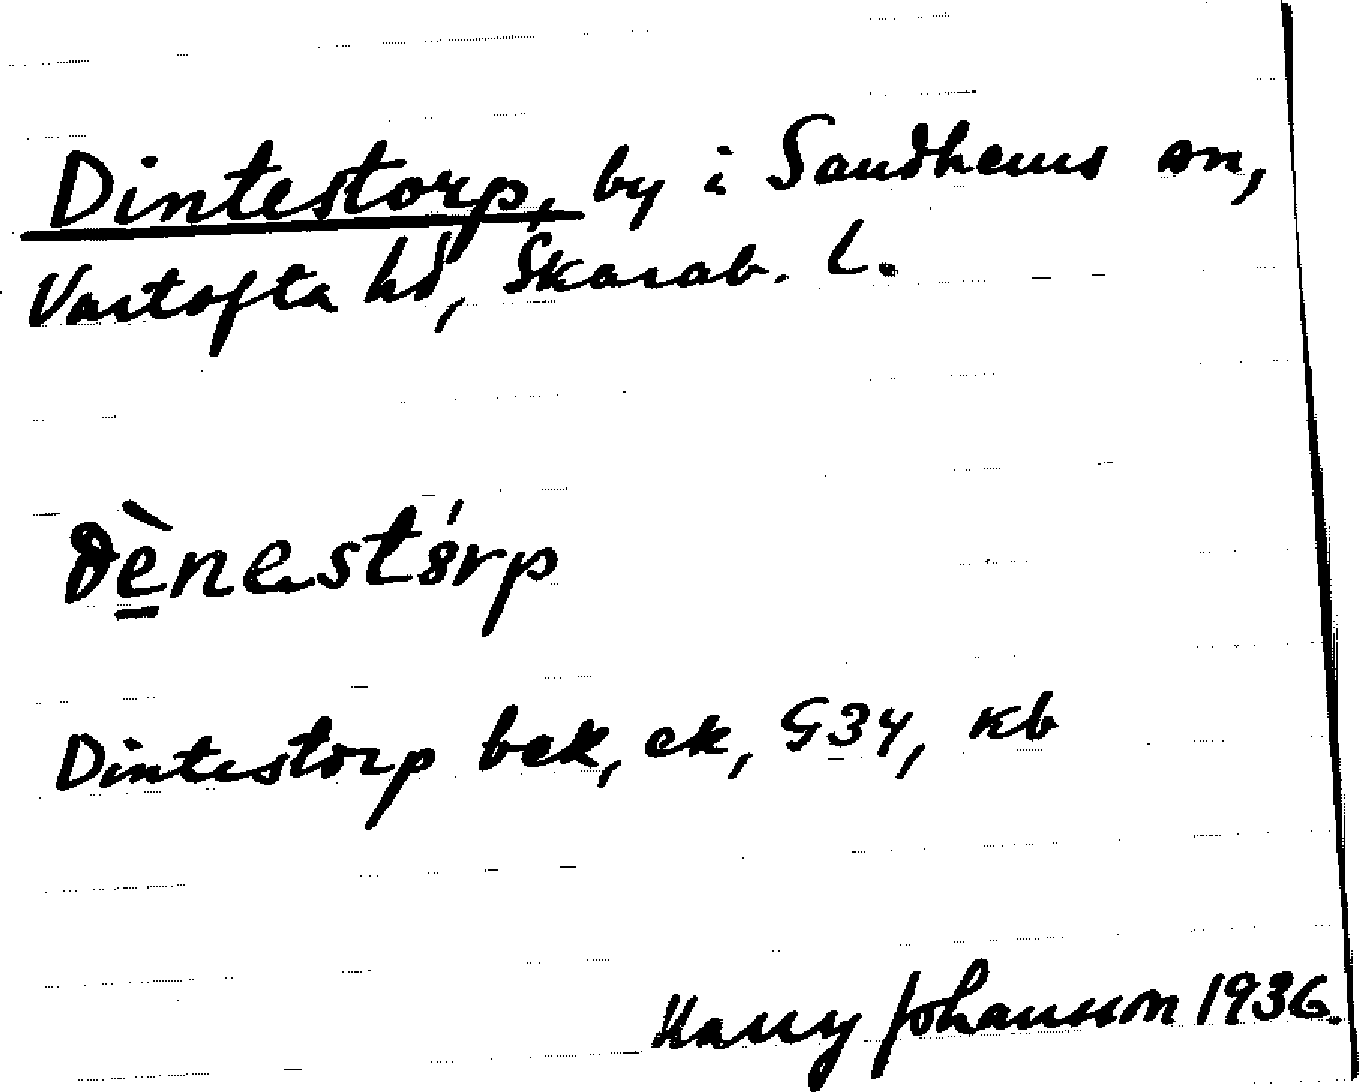 Dintestorp, by i Sandhems sn,
Vartofta hd, Skarab. L.
dènestórp
Dintestorp bek, ek, G34, kb
Harry Johansson 1936.